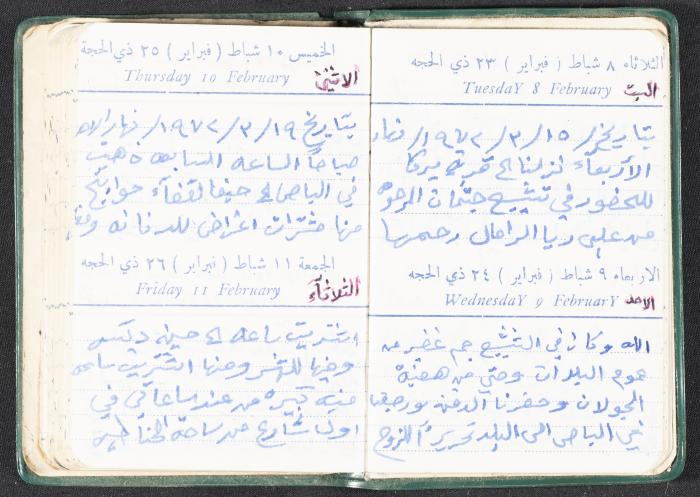 الثلاثاء ٨ شباط ( فبراير ) ٢٣ ذي الحجه
Tuesday 8 February
السبت
بتاريخ ١٥/٣/١٩٧٢/ نهار
الأربعاء نزلنا الى قرية
للحضور في تشييع جثمان المرحومة
الرامال رحمها
الاربعاء ٩ شباط ( فبراير ) ٢٤ ذي الحجه
Wednesday 9 February
الاحد
الله وكان في التشييع جم غفير من
عموم البلدان وحتى من هضبة
الجولان وحضرنا الدفن ورجعنا
في الباص الى البلد
الخميس ١٠ شباط ( فبراير ) ٢٥ ذي الحجة
Thursday 10 February
الاثنين
بتاريخ ١٩/٣/١٩٧٢/ نهار
صباحاً الساعه السابعه ذهبت
في الباص الى حيفا لقضاء حوايج
منها مشترات اغراض للدكانه
الجمعة ١١ شباط ( فبراير ) ٢٦ ذي الحجه
Friday 11 February
الثلاثاء
اشتريت ساعه
ومنها اشتريت ساعه
كبيره من عند ساعاتي في
اول شارع من ساحة